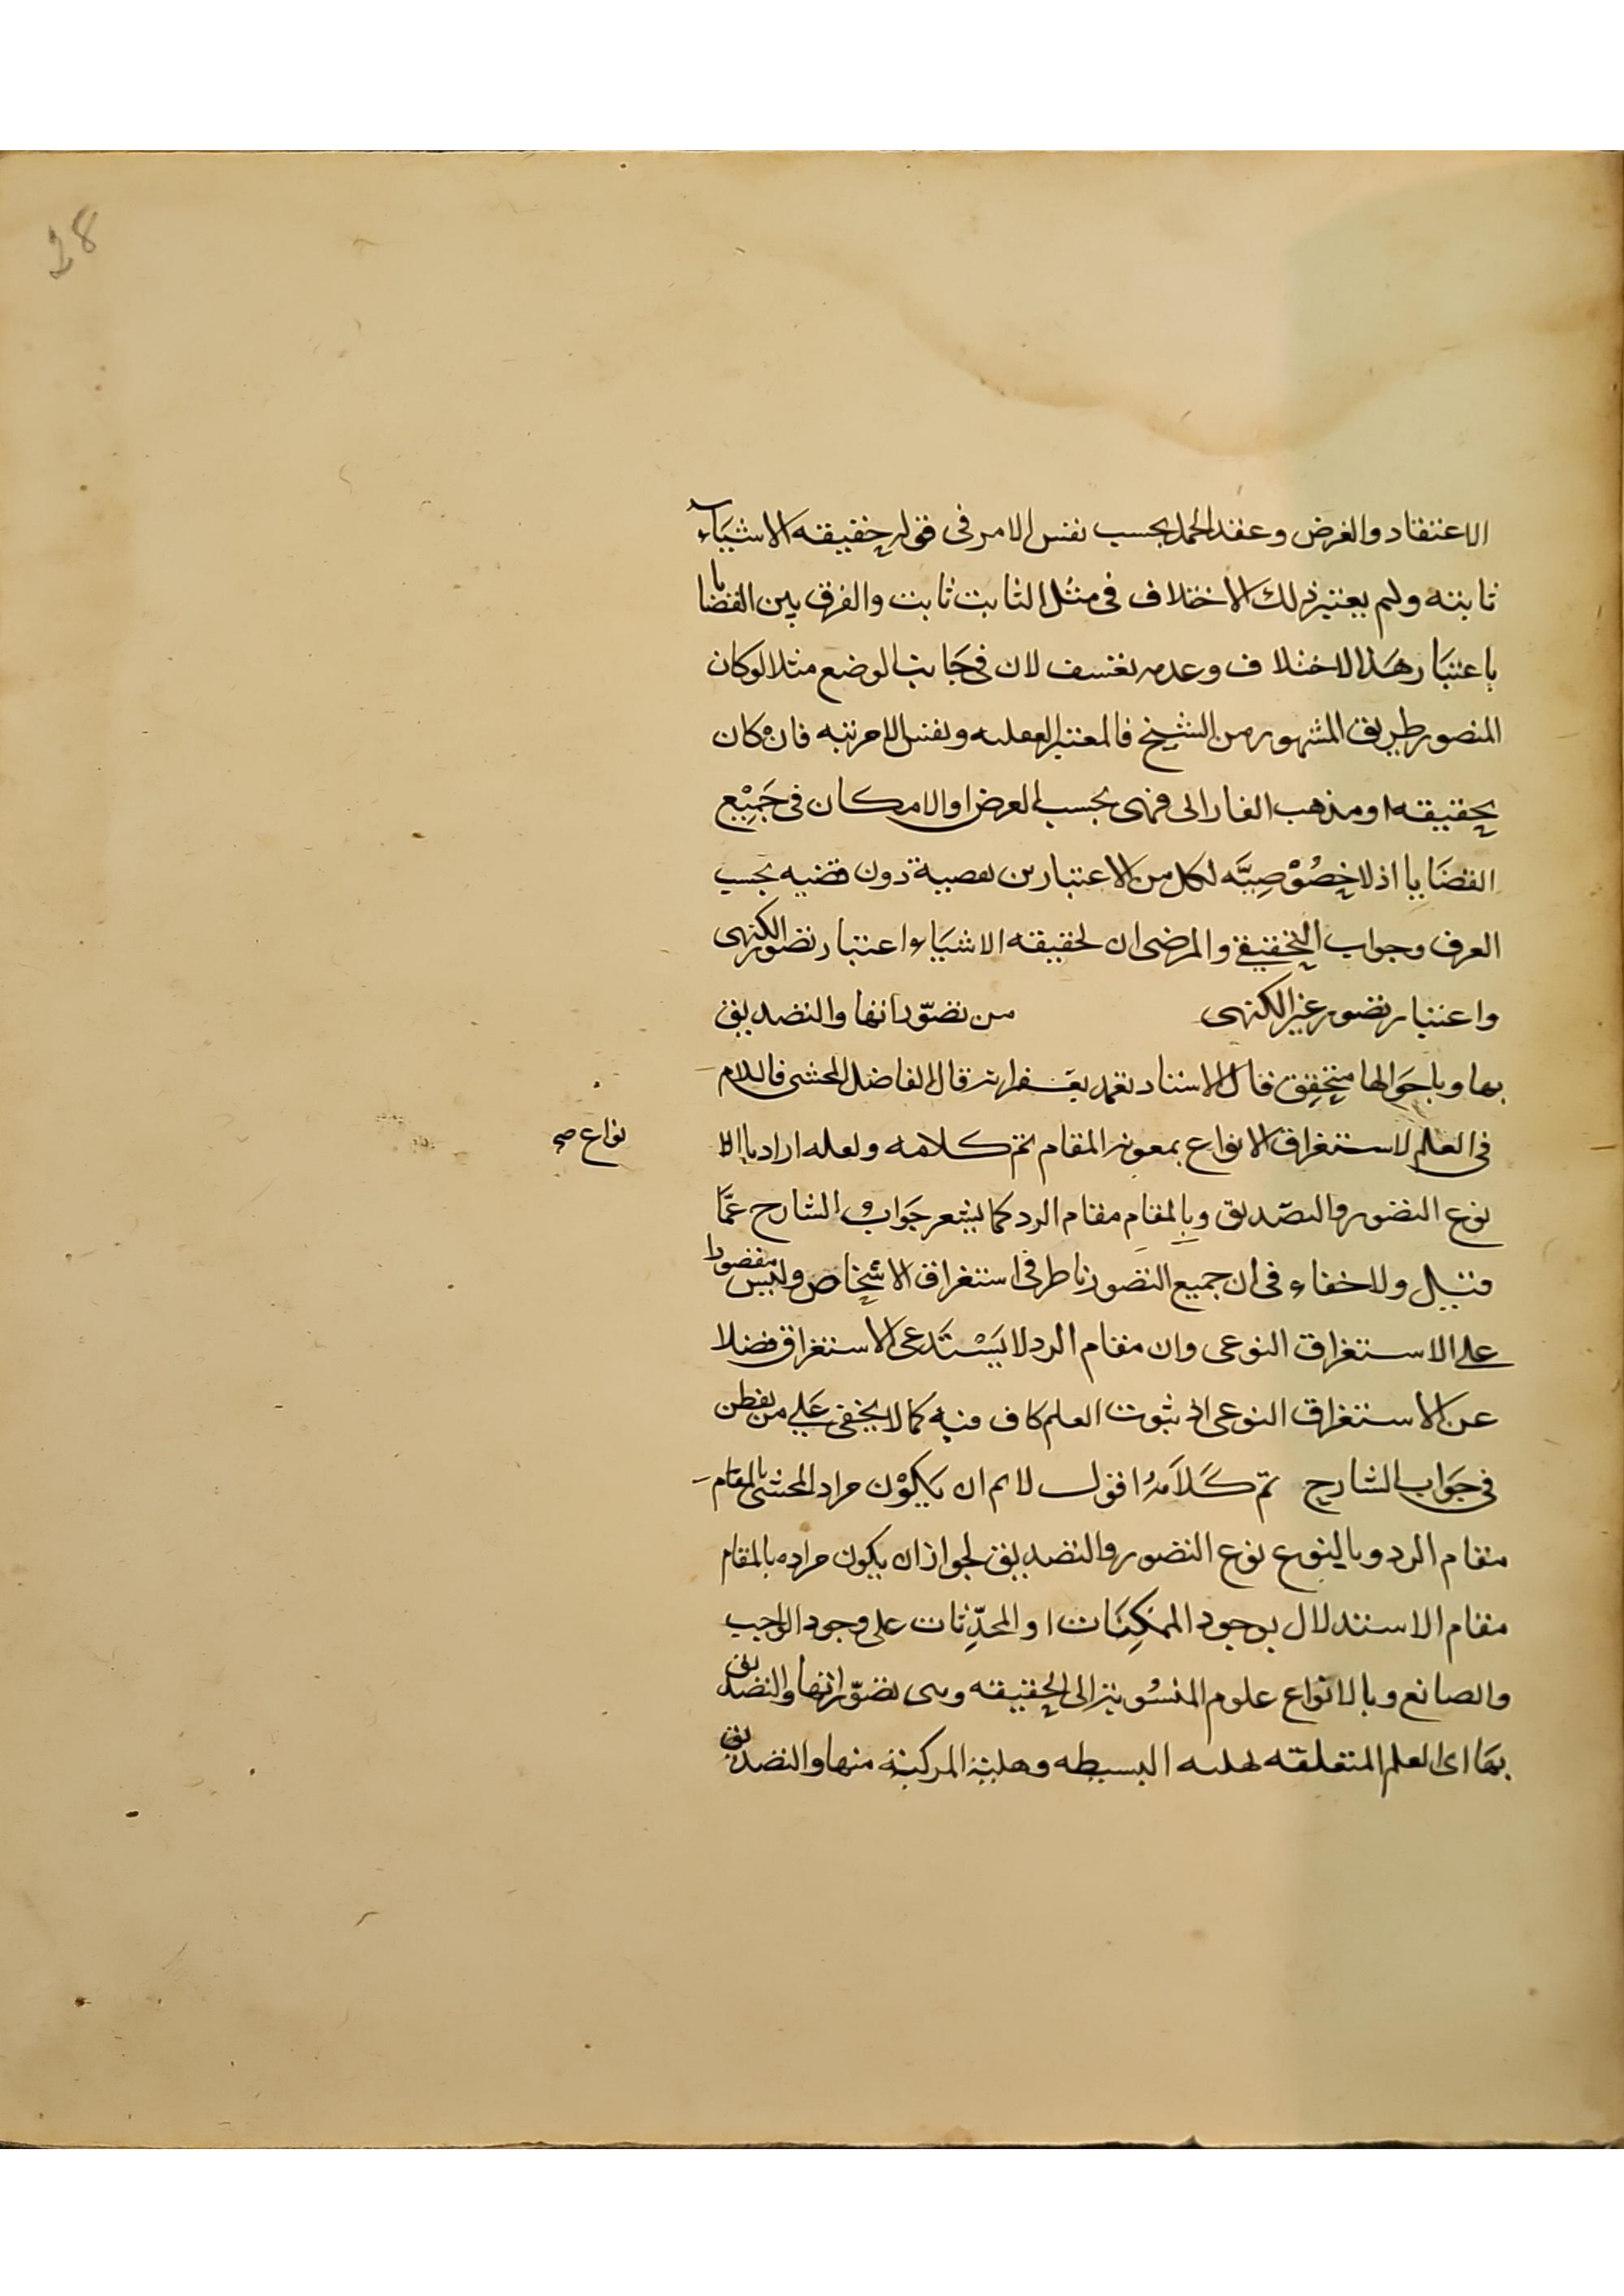 28
الاعتقاد والفرض وعقد الحمل بحسب نفس الامر فى قوله حقيقة الاشياء
ثابته ولم يعتبر ذلك الاختلاف فى مثل الثابت ثابت والفرق بين القضايا
باعتبار هذا الاختلاف وعدمه تعسف لان فى جانب الوضع مثلا لو كان
المنصور طريق المشهور من الشيخ فالمعتبر الفعليه ونفس الامريته فان كان
بحقيقه او مذهب الفارابى فهى بحسب الفرض او الامكان فى جميع
القضايا اذ لا خصوصيه لكل من الاعتبارين بقضية دون قضيه بحسب
العرف وجواب التحقيقى والمرضى ان لحقيقه الاشياء اعتبار تصور الكنهى
واعتبار تصور غير الكنهى من تصوراتها والتصديق
بها وباحوالها متحقق فقال الاستاد تغمد بغفرانه قال الفاضل المحشى فاللام
فى العلم لاستغراق الانواع بمعونة المقام تم كلامه ولعله اراد بالا
نواع صح
نوع التصور والتصديق وبالمقام مقام الرد كما يشعر جواب الشارح عما
قيل ولا خفاء فى ان جميع التصور ناظر فى استغراق الاشخاص وليس مقصورا
على الاستغراق النوعى وان مقام الرد لا يستدعى الاستغراق فضلا
عن الاستغراق النوعى اذ ثبوت العلم كاف فيه كما لا يخفى على من يفطن
فى جواب الشارح تم كلامه اقول لا م ان يكون مراد المحشى بالمقام
مقام الرد وبالنوع نوع التصور والتصديق لجواز ان يكون مراده بالمقام
مقام الاستدلال بوجود الممكنات او المحدثات على وجود الواجب
والصانع وبالانواع علوم المنسوبة الى الحقيقه وهى تصوراتها والتصديق
بها اى العلم المتعلقه لهليه البسيطه وهلية المركبة منها والتصديق